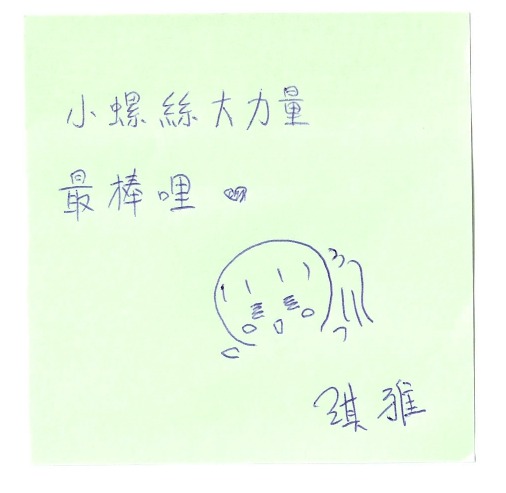 小螺絲大力量
最棒哩
琪雅